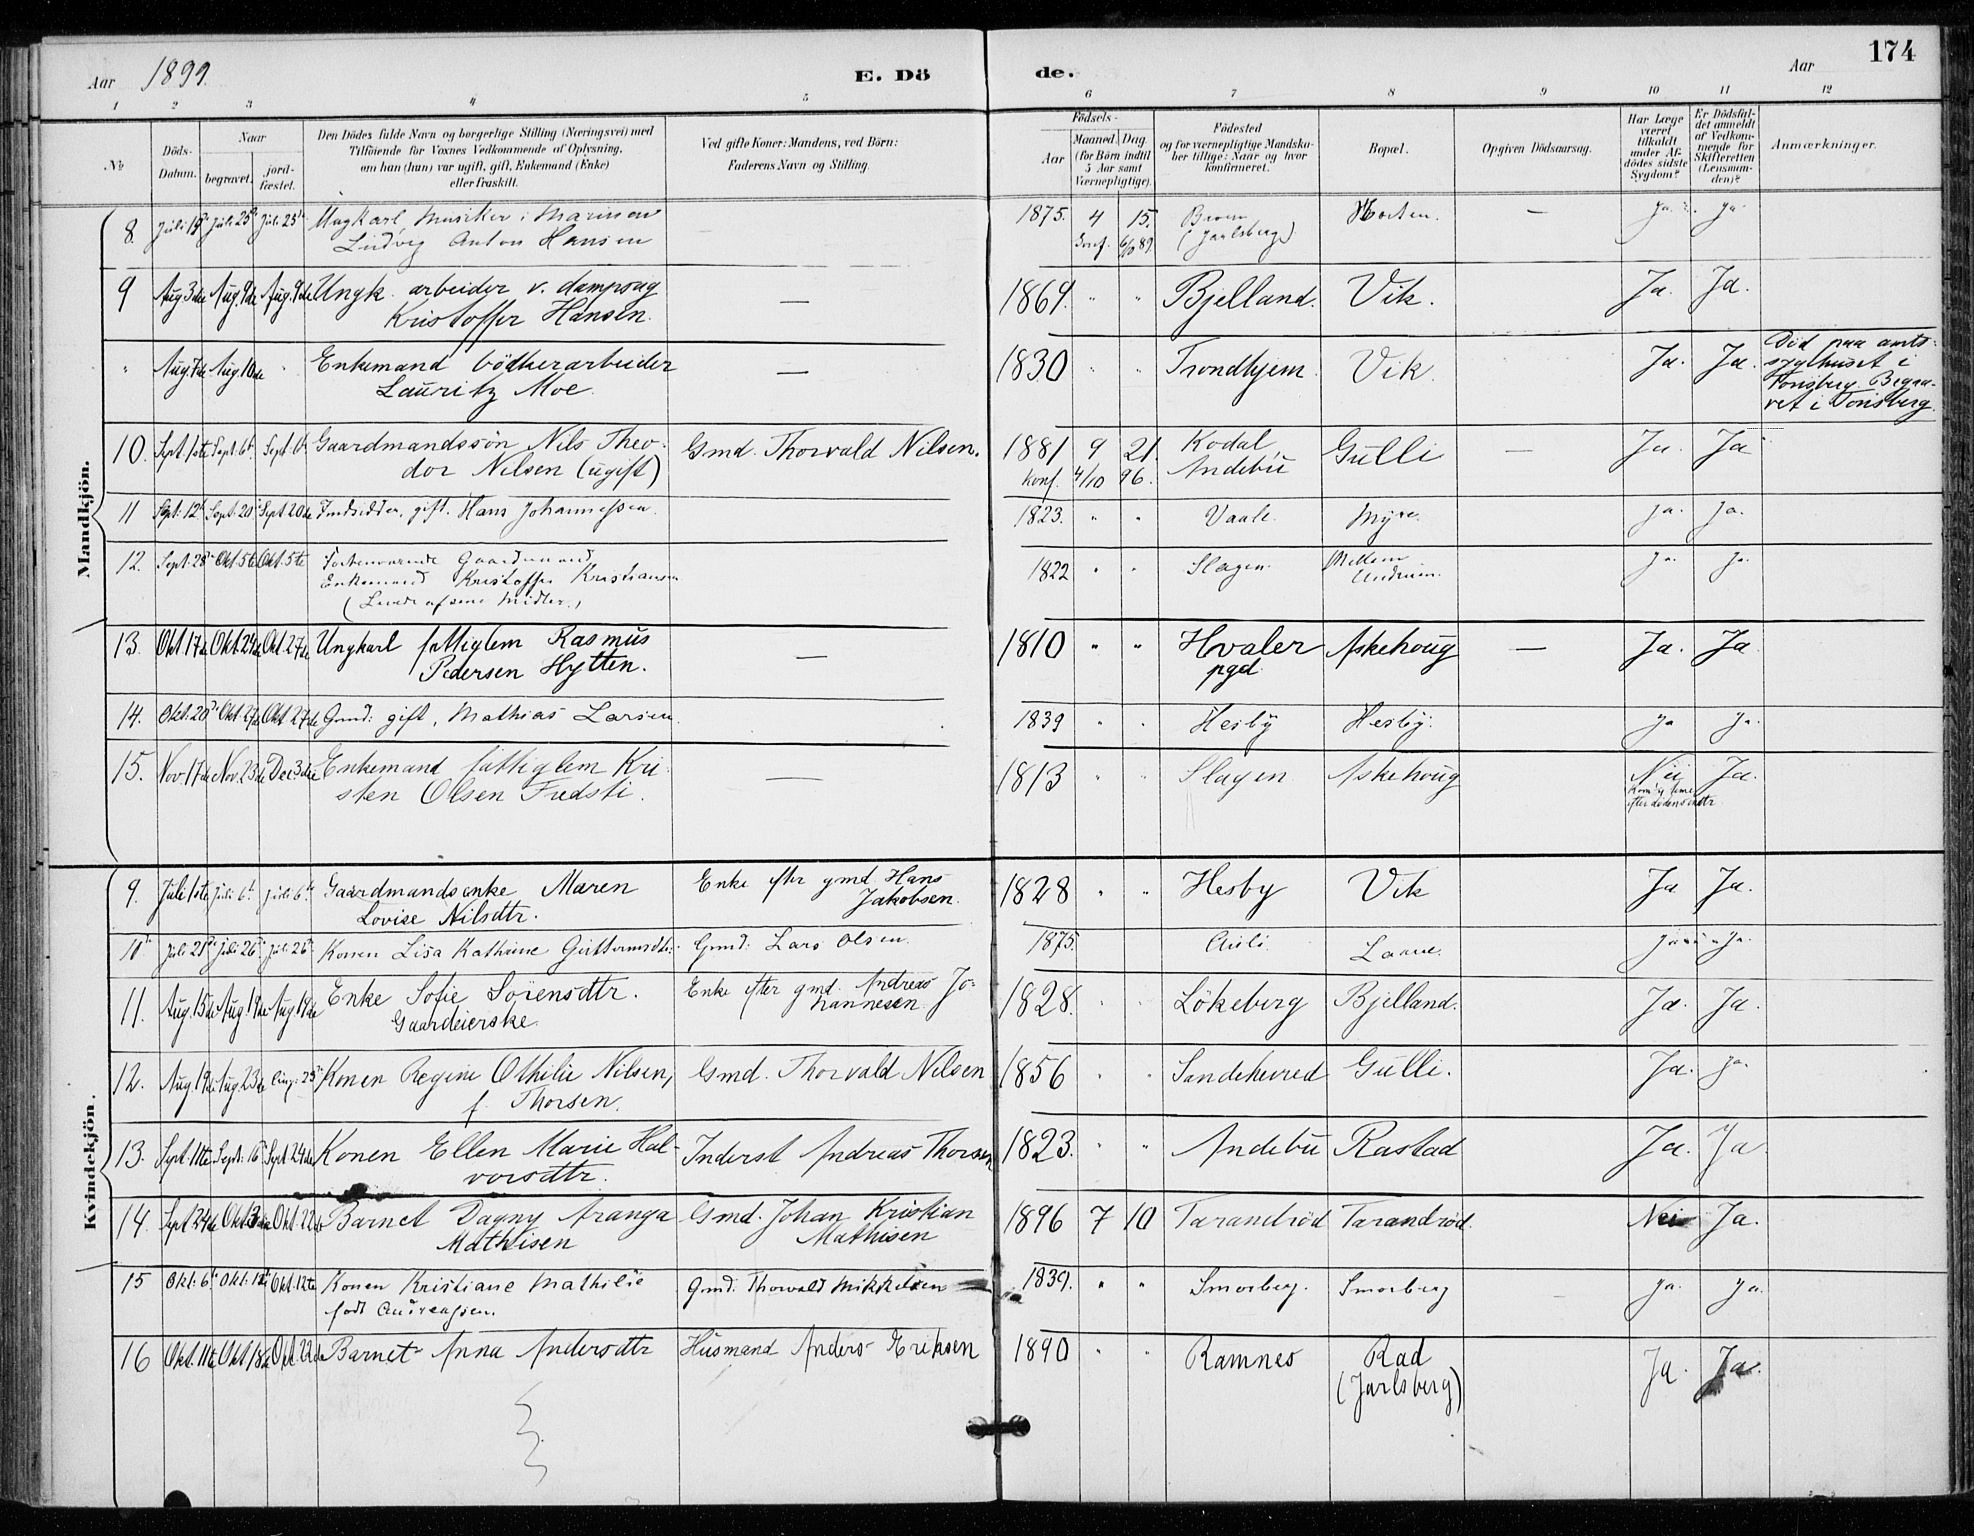 174
Aar 1899. E. Dö de. Aar
1 2 3 4 5 6 7 8 9 10 11 12
№
Döds-Datum.
Naar
begravet.
jordfæstet.
Den Dödes fulde Navn og borgerlige Stilling (Næringsvei) med
Tilföiende för Voxnes Vedkommende af Oplysning,
om han (hun) var ugift, gift, Enkemand (Enke)
eller fraskilt.
Ved gifte Koner: Mandens, ved Börn:
Faderens Navn og Stilling.
Födsels-
Aar
Maaned. Dag.
(for Börn indtil
5 Aar samt
Værnepligtige).
Födested
og for værnepligtige Mandskaber
tillige: Naar og hvor
konfirmeret.
Bopæl.
Opgiven Dödsaarsag.
Har Læge
været
tilkaldt
under Afdödes
sidste
Sygdom?
Er Dödsfaldet
anmeldt
af Vedkommende
for
Skifteretten
(Lensmanden)?
Anmærkninger.
Mandkjön.
8. Juli 19 Juli 25 Juli 25 Ungkarl, Musiker i Marinen 1875. 4 15. Horten. — ja. ja.
Ludvig Anton Hansen Konf. 6/10 89 (Jarlsberg)
9 Aug 3die Aug. 9de Aug. 9de Ungk. arbeider v. dampsag — 1869. " " Bjelland. Vik. Ja. Ja.
Kristoffer Hansen.
" Aug 7de Aug. 10de " Enkemand bödkerarbeider — 1830 " " Trondhjem. Vik. Ja. Ja. Död paa amts-
Lauritz Moe. sygehuset i
Tönsberg. Begra-
vet i Tönsberg.
10. Sept. 1ste Sept. 6t Sept. 6t Gaardmandssön Nils Theo- Gmd. Thorvald Nilsen. 1881 9 21. Kodal Gulli — Ja. Ja
dor Nilsen (ugift) Konf. 4/10 96. Andebu
11 Sept. 12t Sept. 20 Sept 20de Indsidder, gift. Hans Johannessen. 1823. " " Vaale. Myre. ja. ja.
12. Sept. 28 Okt. 5te Okt. 5te Forhenværende Gaardmand 1822 " " Slagen. Mellem ja. ja.
Enkemand Kristoffer Kristiansen Undrum.
(Levede af sine Midler.)
13. Okt 17de Okt. 24de Okt. 27de Ungkarl fattiglem Rasmus — 1810 " " Hvaler Askehoug — Ja. Ja
Pedersen Hytten. pgd.
14. Okt. 20 Okt. 27de Okt. 27de Gmd: gift, Mathias Larsen. 1839 " " Hesby Hesby. ja ja.
15. Nov. 17de Nov. 23de Dec. 3die Enkemand fattiglem Kri- — 1813 " " Slagen. Askehoug Nei Ja.
sten Olsen Tredsti.
efter dödens indtr.
Kvindekjön.
9. Juli 1ste Juli 6t Juli 6t Gaardmandsenke Maren Enke efter gmd. Hans 1828 " " Hesby Vik Ja Ja.
Lovise Nilsdtr. Jakobsen.
10 Juli 21 Juli 26 Juli 26 Konen Lisa Kathrine Guttormsdtr: Gmd: Lars Olsen. 1875. Auli. ja.
11. Aug. 15de Aug. 19de Aug 19de Enke Sofie Sörensdtr. Enke efter gmd. Andreas Jo- 1828. " " Lökeberg Bjelland. Ja. Ja.
Gaardeierske. hannesen
12. Aug. 19de Aug 23de Aug: 25 Konen Regine Othilie Nilsen, Gmd. Thorvald Nilsen 1856 " " Sandeherred Gulli. Ja. ja.
f. Thorsen.
13. Sept. 11te Sept. 16 Sept 24de Konen Ellen Marie Hal- Inderst Andreas Thorsen 1823. " " Andebu Rastad Ja. Ja
vorsdtr.
14. Sept 24de Okt 3die Okt. 22de Barnet Dagny Aranga Gmd. Johan Kristian 1896 7 10 Tarandröd Tarandröd. Nei Ja.
Mathisen Mathisen
15 Okt. 6t Okt. 12te Okt. 12te Konen Kristiane Mathilde Gmd: Thorvald Mikkelsen 1839. " " Smorberg. Smorberg ja. ja.
född
16 Okt. 11te Okt 18de Okt. 22de Barnet Anna Andersdtr Husmand Anders Eriksen 1890 " " Ramnes Rad Ja. Ja.
(Jarlsberg)